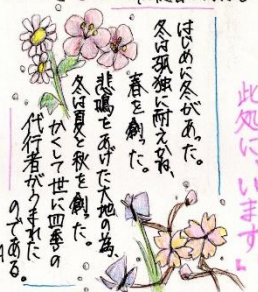 はじめに冬があった。
冬は孤独に耐えかね、
春を創った。
悲鳴をあげた大地の為、
冬は夏と秋を創った。
かくして世に四季の
代行者がうまれた
のである。
此処に、います』